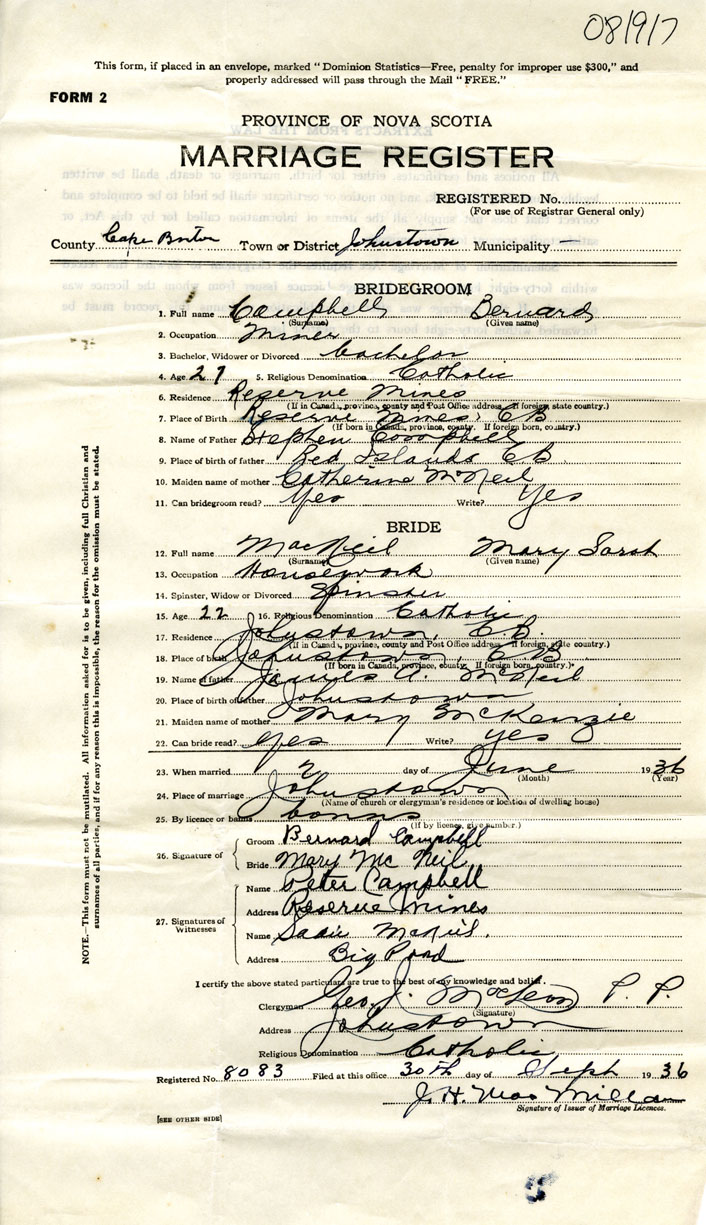 08/9/7
This form, if placed in an envelope, marked "Dominion Statistics—Free, penalty for improper use $300," and
properly addressed will pass through the Mail "FREE."
FORM 2
PROVINCE OF NOVA SCOTIA
MARRIAGE REGISTER
REGISTERED No.
(For use of Registrar General only)
County Cape Breton Town or District Johnstown Municipality —
BRIDEGROOM
1. Full name Campbell Bernard
(Surname) (Given name)
2. Occupation Miner
3. Bachelor, Widower or Divorced bachelor
4. Age 27 5. Religious Denomination Catholic
6. Residence Reserve Mines
(If in Canada, province, county and Post Office address. If foreign, state country.)
7. Place of Birth Reserve Mines, C B
(If born in Canada, province, county. If foreign born, country.)
8. Name of Father Stephen Campbell
9. Place of birth of father Red Islands C B.
10. Maiden name of mother Catherine McNeil
11. Can bridegroom read? Yes Write? Yes
BRIDE
12. Full name MacNeil Mary Sarah
(Surname) (Given name)
13. Occupation Housework
14. Spinster, Widow or Divorced Spinster
15. Age 22 16. Religious Denomination Catholic
17. Residence Johnstown, C B.
(If in Canada, province, county and Post Office address. If foreign, state country.)
18. Place of birth Johnstown, C B
(If born in Canada, province, county. If foreign born, country.)
19. Name of father James A. McNeil
20. Place of birth of father Johnstown
21. Maiden name of mother Mary McKenzie
22. Can bride read? yes Write? yes
23. When married 2 day of June 1936
(Month) (Year)
24. Place of marriage Johnstown
(Name of church or clergyman's residence or location of dwelling house)
25. By licence or banns banns
(If by licence, give number.)
Groom Bernard Campbell
26. Signature of
Bride Mary Mc Neil
Name Peter Campbell
Address Reserve Mines
27. Signatures of Witnesses
Name Sadie McNeil.
Address Big Pond
I certify the above stated particulars are true to the best of my knowledge and belief.
Clergyman Geo. J. MacLean P. P.
(Signature)
Address Johnstown
Religious Denomination Catholic
Registered No. 8083 Filed at this office 30th day of Sept 1936
J. H. MacMillan
Signature of Issuer of Marriage Licences.
[SEE OTHER SIDE]
NOTE.—This form must not be mutilated. All information asked for is to be given, including full Christian and
surnames of all parties, and if for any reason this is impossible, the reason for the omission must be stated.